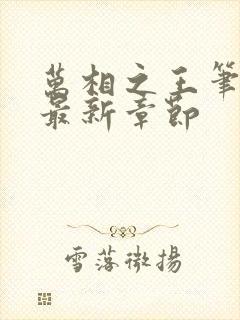 萬相之王筆
最新章節
雪落微揚